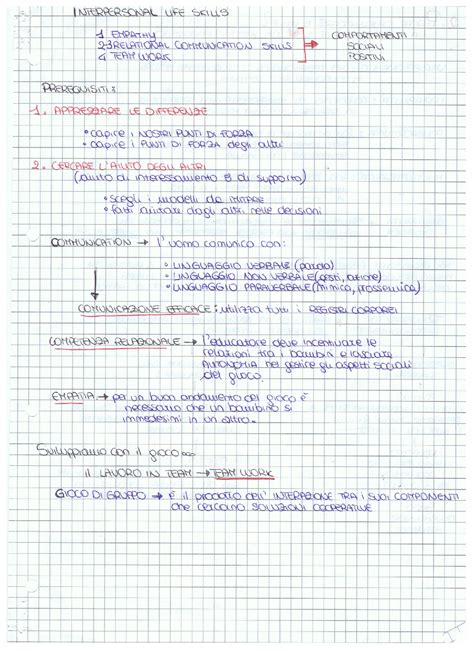 INTERPERSONAL LIFE SKILLS
1 EMPATHY
2-3 RELATIONAL COMMUNICATION SKILLS
4 TEAM WORK
COMPORTAMENTI
SOCIALI
POSITIVI
PREREQUISITI:
1. APPREZZARE LE DIFFERENZE
• capire i NOSTRI PUNTI DI FORZA
• capire i PUNTI DI FORZA degli altri
2. CERCARE L'AIUTO DEGLI ALTRI
(aiuto di interessamento e di supporto)
• scegli i modelli da IMITARE
• fatti aiutare dagli altri nelle decisioni
COMMUNICATION → l'uomo comunica con:
• LINGUAGGIO VERBALE (parola)
• LINGUAGGIO NON VERBALE (gesti, azione)
• LINGUAGGIO PARAVERBALE (mimica, prossemica)
COMUNICAZIONE EFFICACE: utilizza tutti i REGISTRI CORPOREI
COMPETENZA RELAZIONALE → l'educatore deve incentivare le
relazioni tra i bambini e lasciare
AUTONOMIA nel gestire gli aspetti sociali
del gioco.
EMPATIA → per un buon andamento del gioco è
necessario che un bambino si
immedesimi in un altro.
Sviluppiamo con il gioco...
il LAVORO IN TEAM → TEAM WORK
GIOCO DI GRUPPO → È il prodotto dell'INTERAZIONE TRA I SUOI COMPONENTI
che cercano SOLUZIONI COOPERATIVE